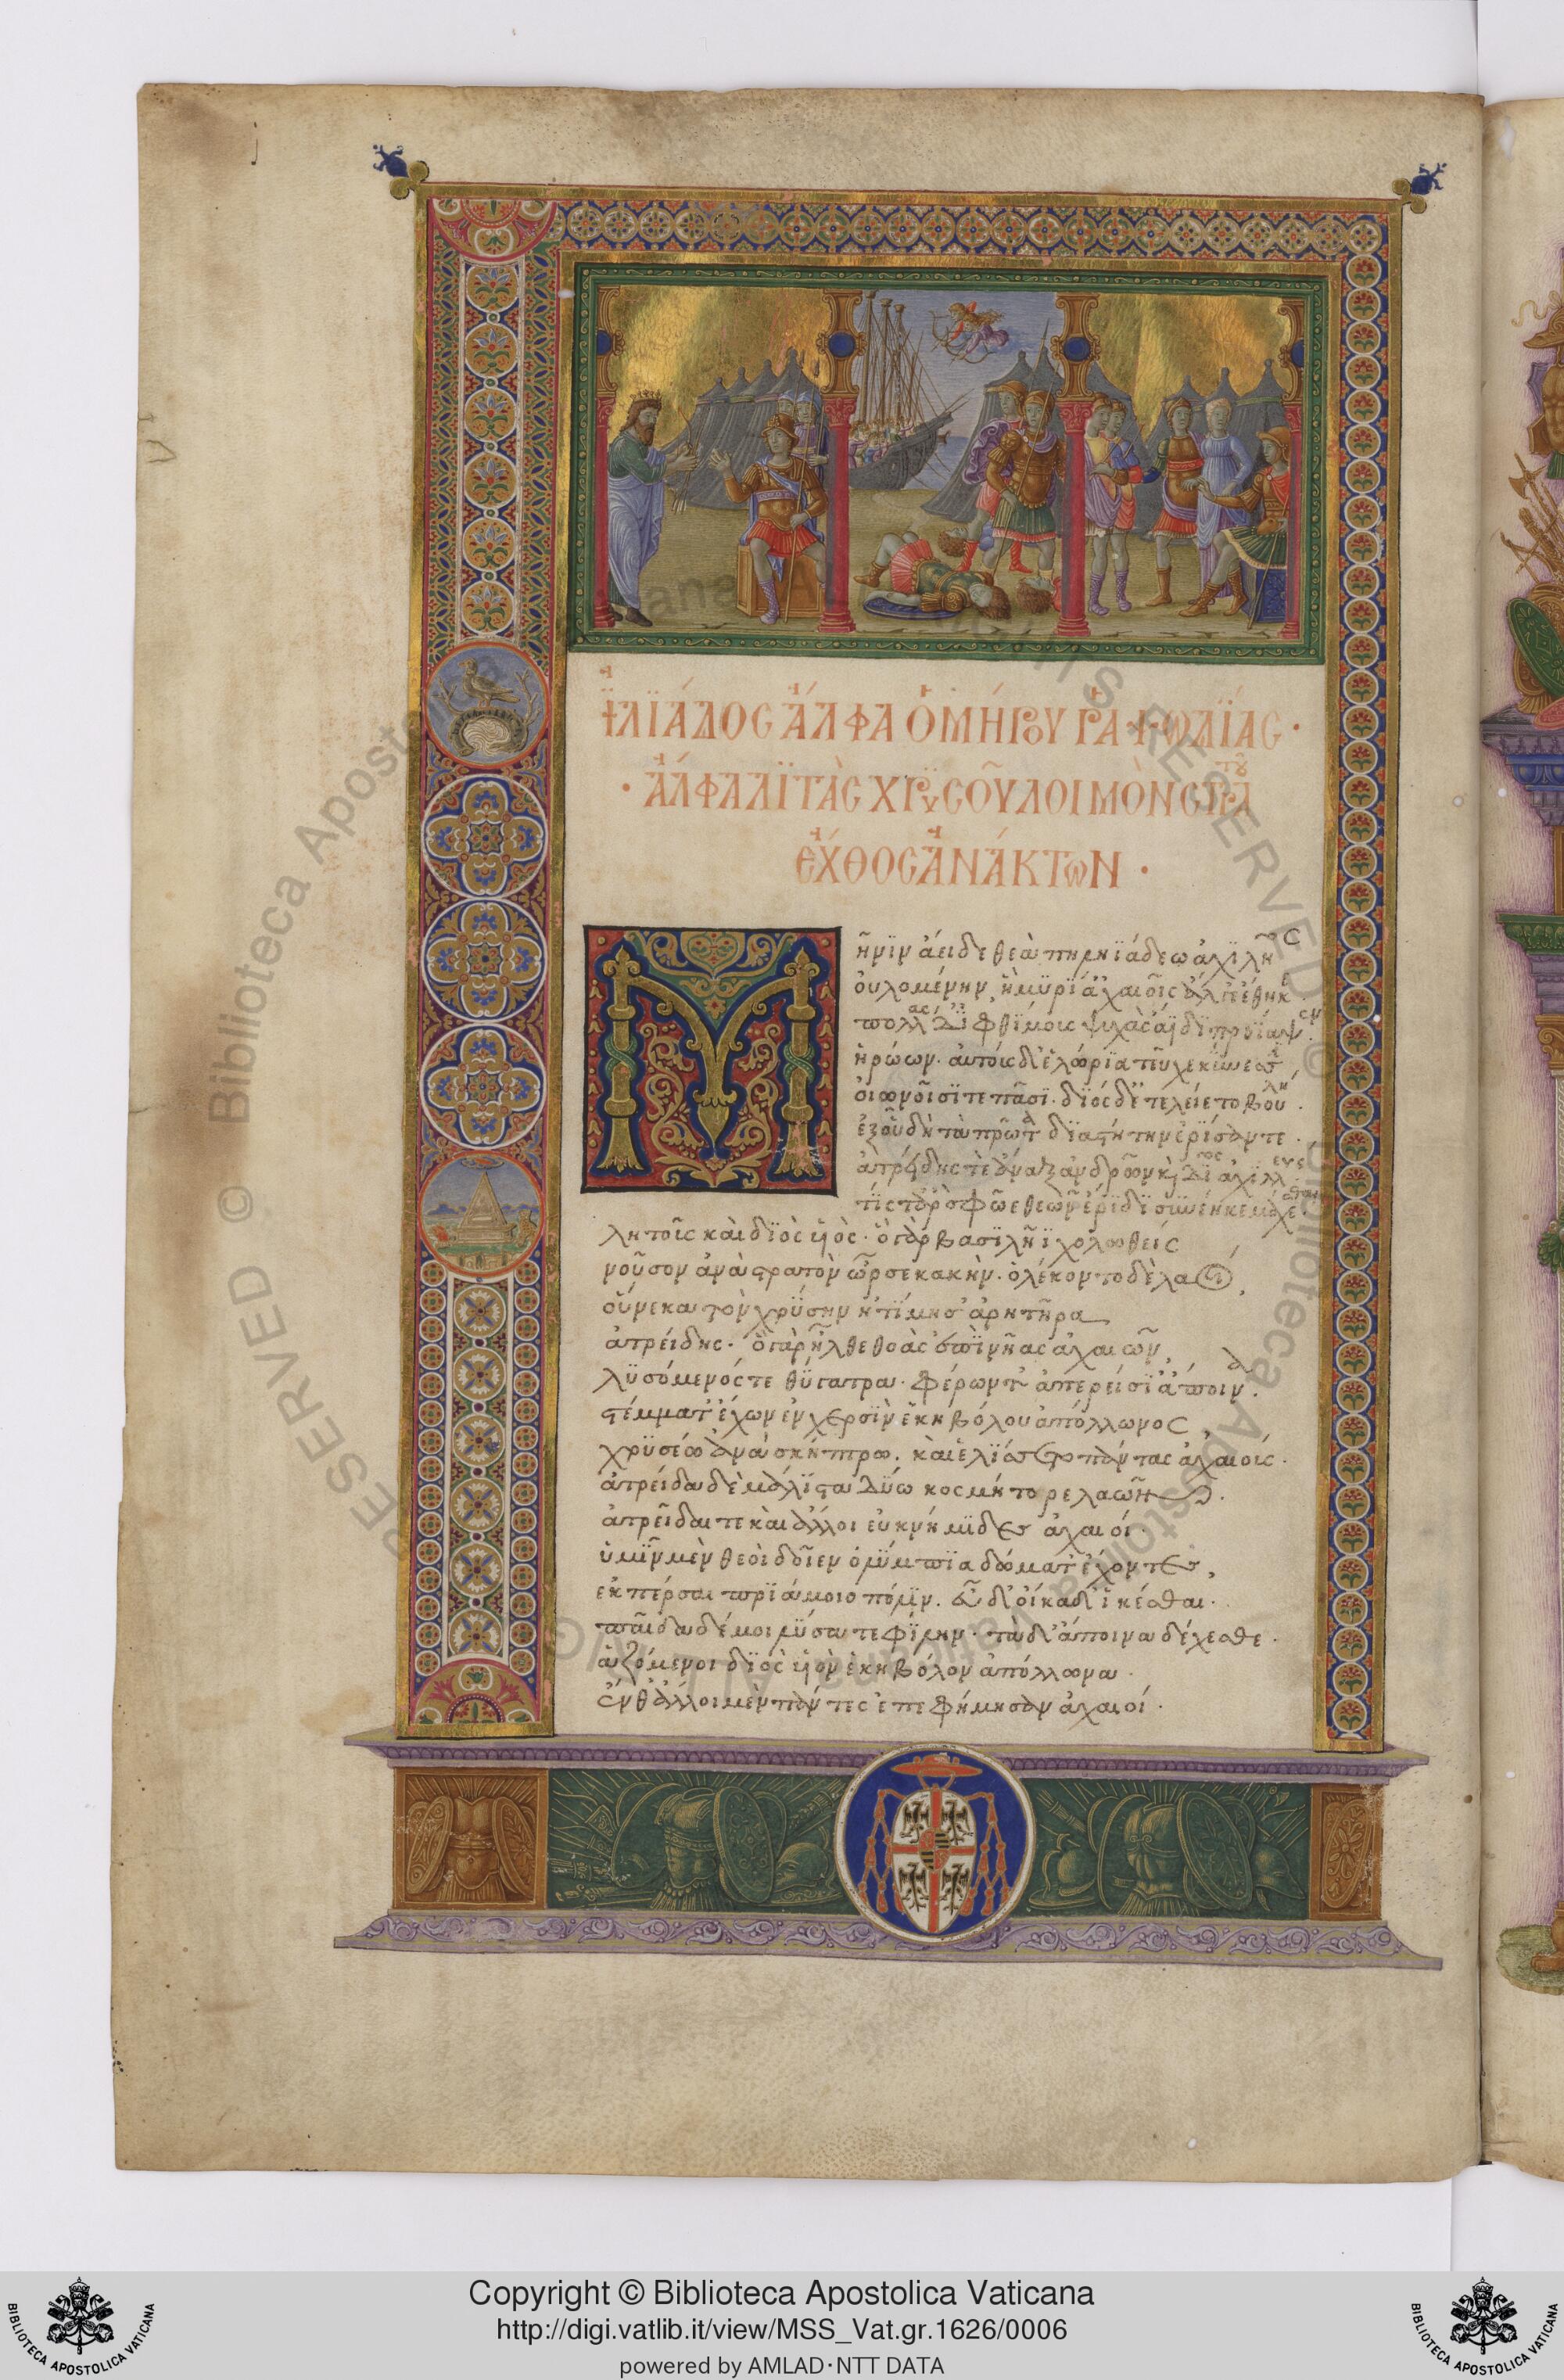 ἸΛΪΆΔΟС ἌΛΦΑ ὉΜΉΡΟΥ ῬΑΨΩΔΪΑС ·
· ἌΛΦΑ ΛΪΤᾺС ΧΡΎСΟΥ ΛΟΙΜῸΝ СΤΡΑΤΟΥ
ἘΧΘΟС ἈΝΆΚΤΩΝ ·
Μῆνϊν ἄειδε θεὰ πηληϊάδεω ἀχϊλῆος
οὐλομένην, ἣ μϋρΐ ἀχαιοῖς ἄλγε ἔθηκε.
πολλὰς δ' ἰφθΐμους ψυχὰς ἄϊδϊ προΐαψεν.
ἡρώων. αὐτοὺς δ' ἑλώρϊα τεῦχε κύνεσσϊν
οἰωνοῖσΐ τε πᾶσϊ. δϊὸς δ' ἐτελείετο βουλή.
ἐξ οὗ δὴ τὰ πρῶτα δϊαστήτην ἐρΐσαντε.
ἀτρείδης τε ἄναξ ἀνδρῶν καὶ δῖος ἀχϊλλεύς
τίς τ' ἄρ σφῶε θεῶν ἔρϊδϊ ξυνέηκε μάχεσθαι
λητοῦς καὶ δϊὸς υἱὸς. ὁ γὰρ βασϊλῆϊ χολωθεὶς
νοῦσον ἀνὰ στρατὸν ὦρσε κακὴν. ὀλέκοντο δὲ λαοί,
οὕνεκα τὸν χρύσην ἠτΐμησ' ἀρητῆρα
ἀτρείδης. ὁ γὰρ ἦλθε θοὰς ἐπὶ νῆας ἀχαιῶν
λϋσόμενός τε θύγατρα. φέρων τ' ἀπερείσϊ' ἄποινα.
στέμματ' ἔχων ἐν χερσϊν ἑκηβόλου ἀπόλλωνος
χρϋσέω ἀνὰ σκήπτρω. καὶ ἐλΐσσετο πάντας ἀχαιούς.
ἀτρείδα δὲ μάλϊστα δύω κοσμήτορε λαῶν.
ἀτρεῖδαι τε καὶ ἄλλοι εὐκνήμϊδες ἀχαιοί.
ὑμῖν μὲν θεοὶ δοῖεν ὀλύμπϊα δώματ' ἔχοντες,
ἐκπέρσαι πρϊάμοιο πόλϊν. εὖ δ' οἴκαδ' ἱκέσθαι.
παῖδα δέ μοι λύσατε φΐλην. τὰ δ' ἄποινα δέχεσθε.
ἁζόμενοι δϊὸς υἱὸν ἑκηβόλον ἀπόλλωνα.
ἔνθ' ἄλλοι μὲν πάντες ἐπευφήμησαν ἀχαιοί.
Copyright © Biblioteca Apostolica Vaticana
http://digi.vatlib.it/view/MSS_Vat.gr.1626/0006
powered by AMLAD·NTT DATA
BIBLIOTECA APOSTOLICA VATICANA
BIBLIOTECA APOSTOLICA VATICANA